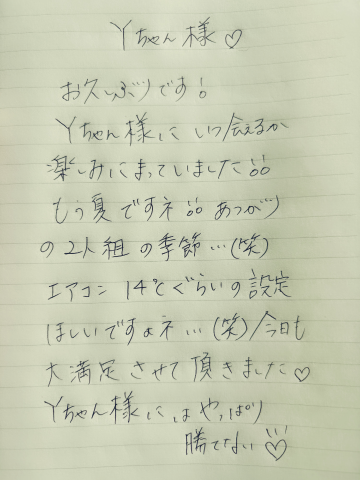 Yちゃん様♡
お久しぶりです!
Yちゃん様に いつ会えるか
楽しみにまっていました!!
もう夏ですネ!! あつがり
の2人組の季節…(笑)
エアコン 14℃ぐらいの設定
ほしいですよネ…(笑)今日も
大満足させて頂きました♡
Yちゃん様にはやっぱり
勝てない♡